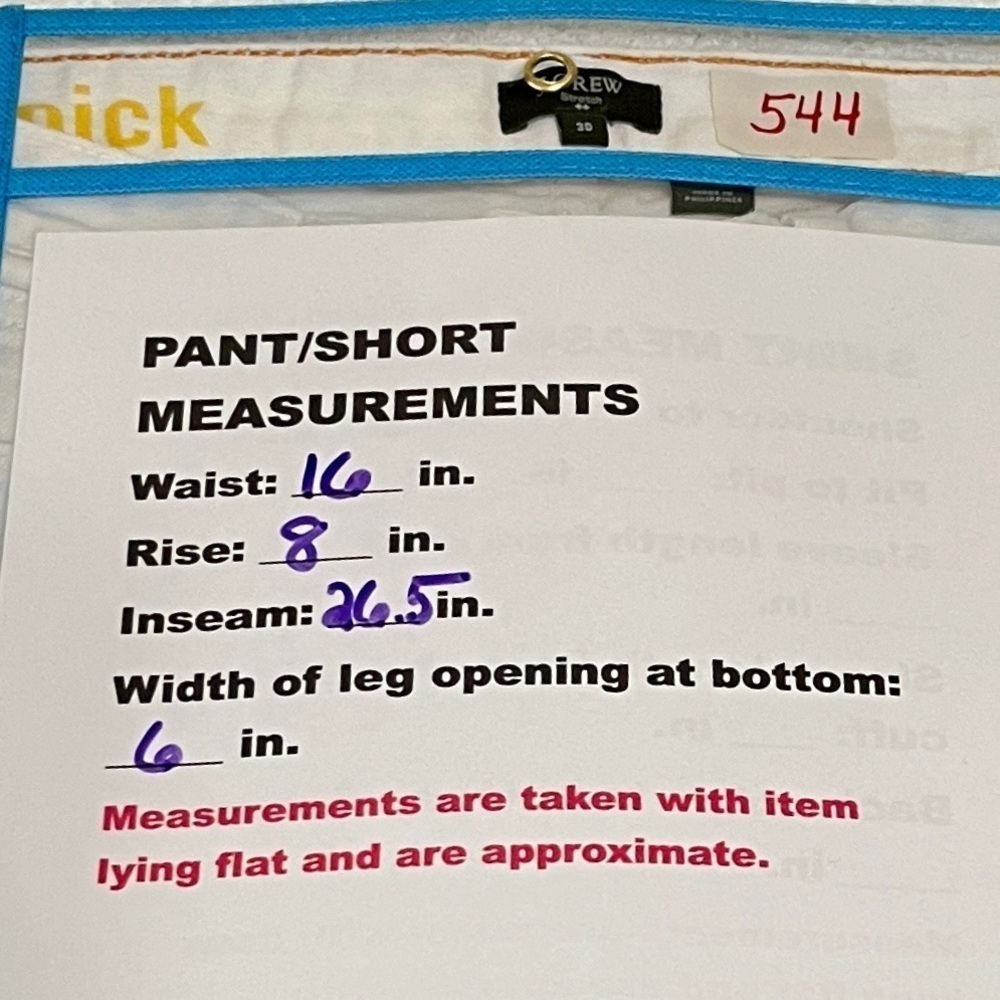 nick
J.CREW
Stretch
30
544
MADE IN
PHILIPPINES
PANT/SHORT
MEASUREMENTS
Waist: 16 in.
Rise: 8 in.
Inseam: 26.5 in.
Width of leg opening at bottom:
6 in.
Measurements are taken with item
lying flat and are approximate.